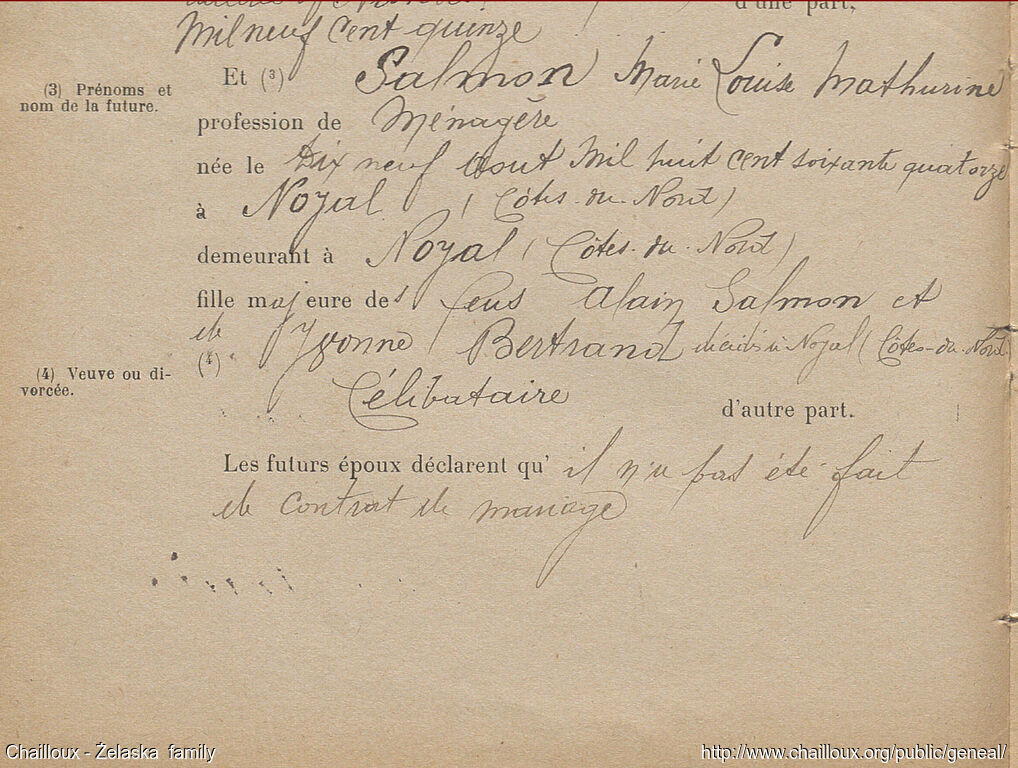 d'une part,
Mil neuf Cent quinze
Et (3) Salmon Marie Louise Mathurine
(3) Prénoms et
nom de la future.
profession de Ménagère
née le Dix neuf Aout Mil huit cent soixante quatorze
à Noyal (Côtes-du-Nord)
demeurant à Noyal (Côtes-du-Nord)
fille majeure des feus Alain Salmon et
de Yvonne Bertrand décédés à Noyal (Côtes-du-Nord)
(4)
(4) Veuve ou di-
vorcée.
Célibataire
d'autre part.
Les futurs époux déclarent qu' il n'a pas été fait
de contrat de mariage
Chailloux - Żelaska family
http://www.chailloux.org/public/geneal/